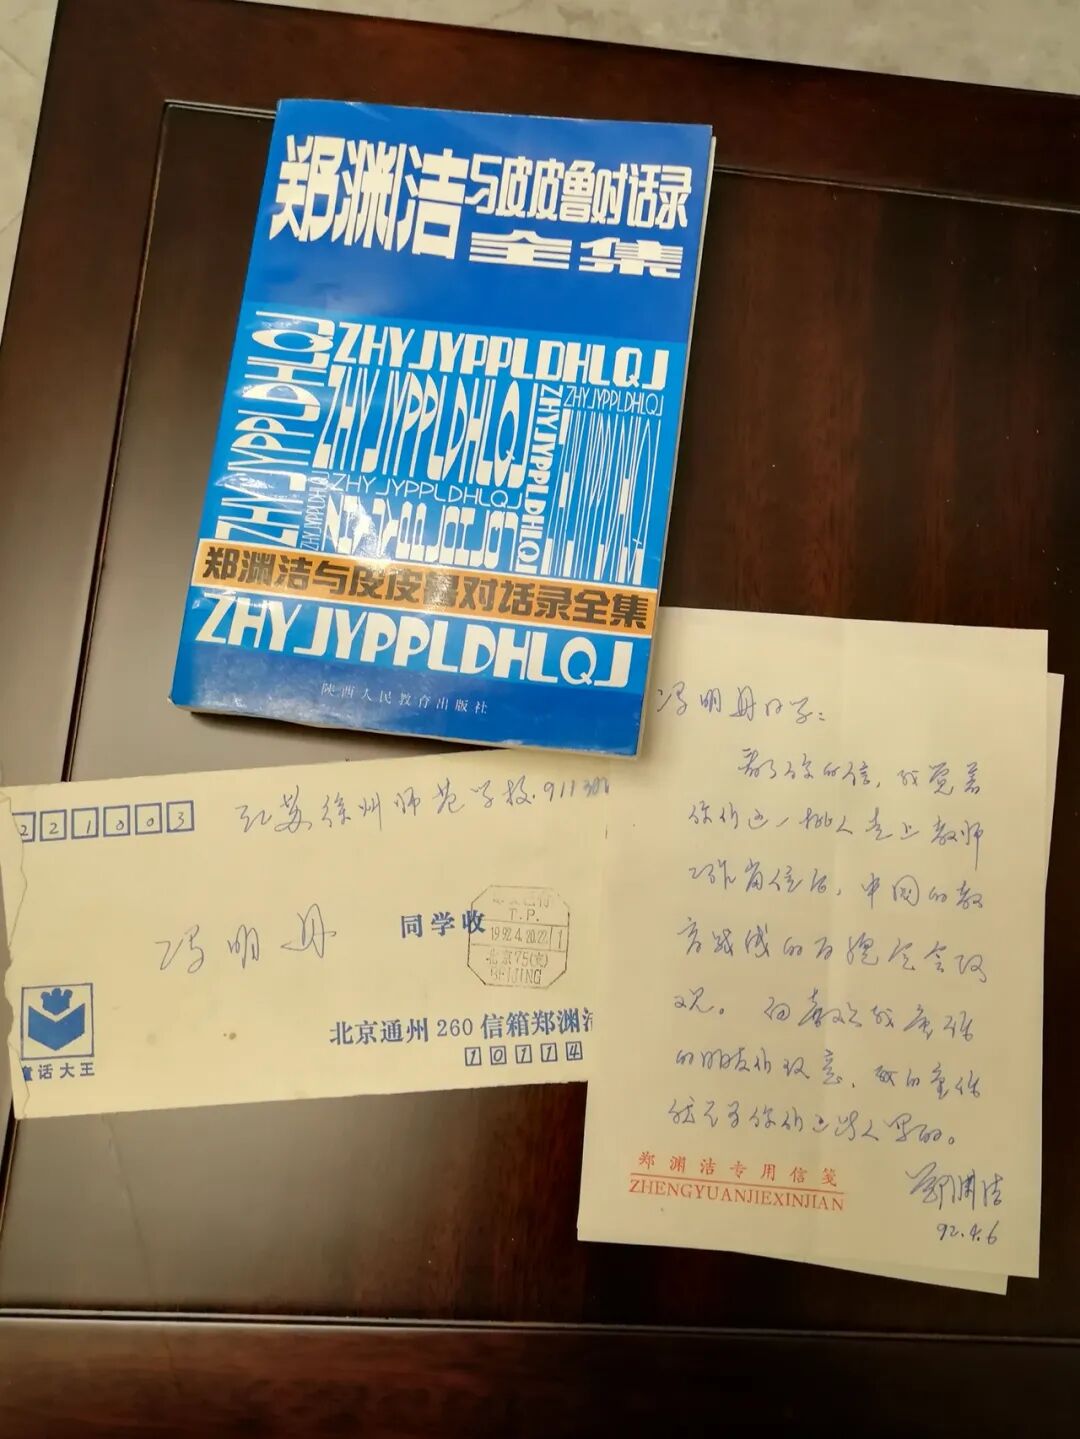 郑渊洁与皮皮鲁对话录
全集
ZHYJYPPLDHLQJ
ZHYJYPPLDHLQJ
ZHYJYPPLDHLQJ
ZHYJYPPLDHLQJ
ZHYJYPPLDHLQJ
ZHYJYPPLDHLQJ
郑渊洁与皮皮鲁对话录全集
ZHYJYPPLDHLQJ
陕西人民教育出版社
221003
江苏徐州师范学校
冯明丹
同学收
T.P.
1992.4.20.22 1
北京75(支)
BEIJING
北京通州260信箱郑渊洁
10114
童话大王
冯明丹同学:
看了你的信,我觉着
你们这一批人走上教师
工作岗位后,中国的教
育战线的面貌定会改
观。向喜欢我童话
的朋友们致意,我的童话
就是为你们这些人写的。
郑渊洁
92.4.6
郑渊洁专用信笺
ZHENGYUANJIEXINJIAN